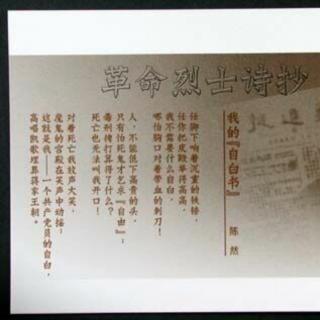 革命烈士诗抄
我的『自白书』
陈然
任脚下响着沉重的铁镣，
任你把皮鞭举得高高，
我不需要什么自白，
哪怕胸口对着带血的刺刀！
人，不能低下高贵的头，
只有怕死鬼才乞求『自由』；
毒刑拷打算得了什么？
死亡也无法叫我开口！
对着死亡我放声大笑，
魔鬼的宫殿在笑声中动摇；
这就是我——一个共产党员的自白，
高唱凯歌埋葬蒋家王朝。